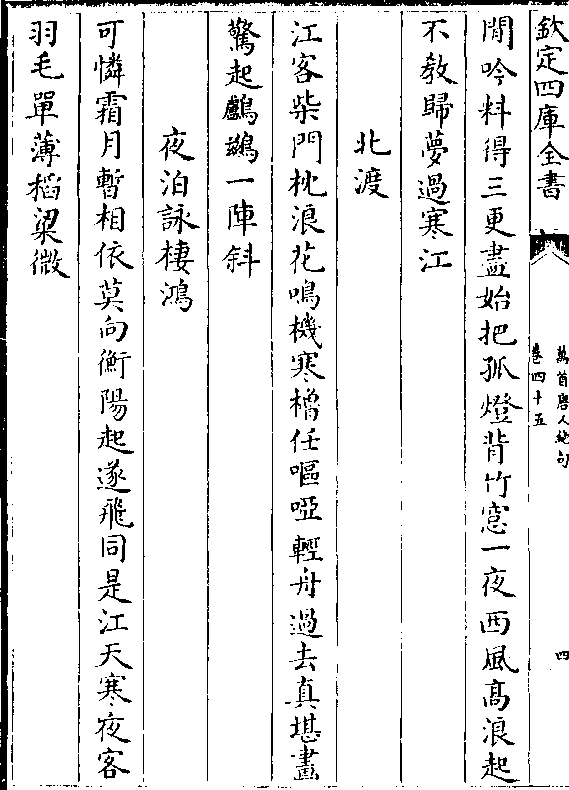 欽定四庫全書
萬首唐人絶句
卷四十五
四
閒吟料得三更盡始把孤燈背竹窓一夜西風高浪起
不教歸夢過寒江
北渡
江客柴門枕浪花鳴機寒櫓任嘔啞輕舟過去真堪畫
驚起鸕鷀一陣斜
夜泊詠棲鴻
可憐霜月暫相依莫向衡陽起遂飛同是江天寒夜客
羽毛單薄稻粱微